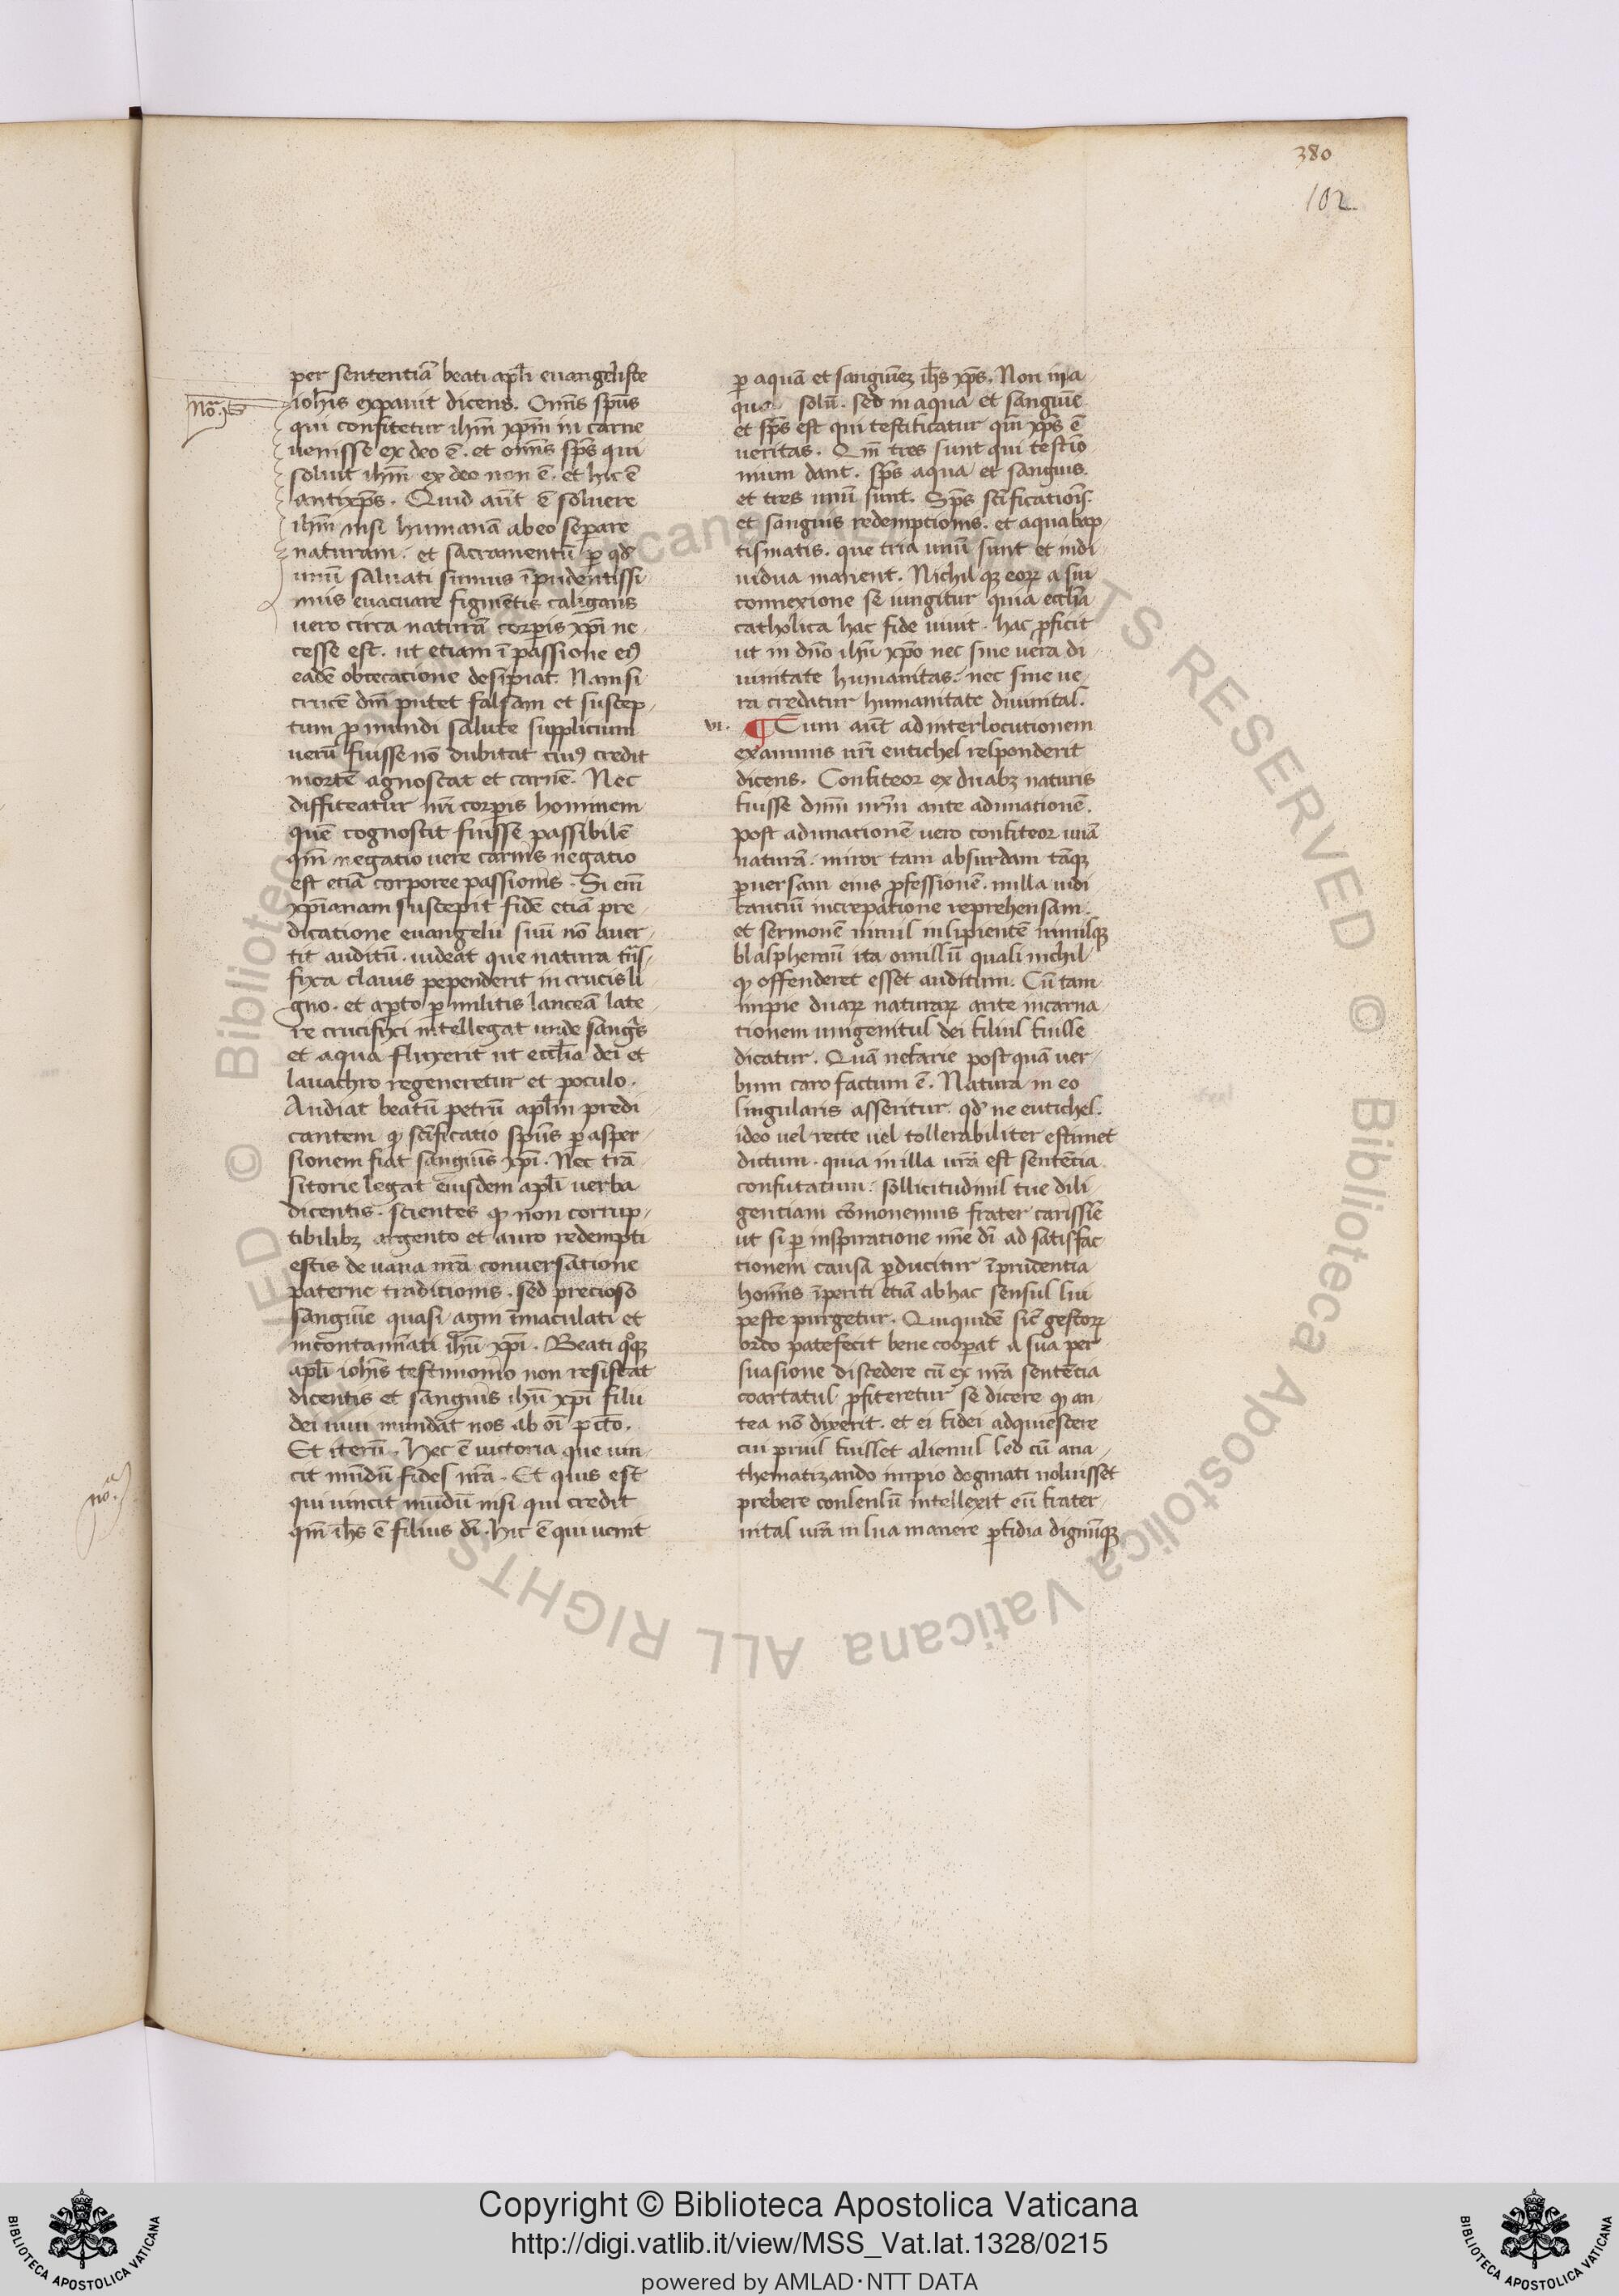 380
102
per sententiā beati apl̄i euangeliste
Noͣ
ioh̄is expauit dicens. Om̄is sp̄us
qui confitetur ih̄m xp̄m in carne
uenisse ex deo ē. et om̄is sp̄s qui
soluit ih̄m ex deo non ē. et hic ē
antixp̄s. Quid aūt ē soluere
ih̄m nisi humanā ab eo separe
naturam. et sacramentū ꝑ qd̄
unū saluati sumus īpudentissi
mis euacuare figmētis caligans
uero circa naturā corꝑis xp̄i ne
cesse est. ut etiam ī passione eiꝰ
eadē obcecatione desipiat. Nam si
crucē dn̄i putet falsam et suscep
tum ꝓ mundi salute supplicium
uerū fuisse nō dubitat cuiꝰ credit
mortē agnoscat et carnē. Nec
diffiteatur nr̄i corꝑis hominem
quē cognoscit fuisse passibilē
qm̄ negatio uere carnis negatio
est etiā corporee passionis. Si em̄
xp̄ianam suscepit fidē etiā pre
dicatione euangelii suū nō auer
tit auditū. uideat que natura trāſ
fixa clauis pependerit in crucis li
gno. et aꝑto ꝑ militis lanceā late
re crucifixi intellegat unde sangͥs
et aqua fluxerit ut eccl̄ia dei et
lauachro regeneretur et poculo.
Audiat beatū petrū apl̄m predi
cantem ꝙ sc̄ificatio sp̄us ꝑ asper
sionem fiat sanguīs xp̄i. Nec trā
sitorie legat eiusdem apl̄i uerba
dicentis. scientes ꝙ non corrup
tibilibꝫ argento et auro redempti
estis de uana nr̄a conuersatione
paterne traditionis. sed precioso
sanguīe quasi agni īmaculati et
incontamīati ih̄u xp̄i. Beati qͦqꝫ
apl̄i ioh̄is testimonio non resistat
dicentis et sanguis ih̄u xp̄i filii
dei uiui mundat nos ab oī pc̄to.
Et iterū. Hec ē uictoria que uin
cit mūdū fides nr̄a. Et quis est
qui uincit mūdū nisi qui credit
noͣ.
qm̄ ih̄s ē filius dī. Hic ē qui uenit
ꝑ aquā et sanguinez ih̄s xp̄s. Non in a
qua solū. sed in aqua et sanguīe
et sp̄s est qui testificatur qm̄ xp̄s ē
ueritas. Qm̄ tres sunt qui testīo
nium dant. sp̄s aqua et sanguis.
et tres unū sunt. Sp̄s sc̄ificatiōis
et sanguis redemptionis. et aqua bap
tismatis. que tria unū sunt et indi
uidua manent. Nichil qꝫ eoꝝ a sui
connexione se iungitur quia eccl̄ia
catholica hac fide uiuit. hac ꝓficit
ut in dn̄o ih̄u xp̄o nec sine uera di
uinitate humanitas. nec sine ue
ra credatur humanitate diuinitaſ.
VI. ¶ Cum aūt ad interlocutionem
examinis nr̄i euticheſ reſponderit
dicens. Confiteor ex duabꝫ naturis
fuisse dnm̄ nr̄m ante adunationē.
post adunationē uero confiteor unā
naturā. miror tam absurdam tāqꝫ
ꝑuersam eius ꝓfessionē. nulla iudi
cantiū increpatione reprehensam.
et sermonē nimiſ inſipientē nimiſqꝫ
blaſphemū ita omiſſū quaſi nichil
ꝙ offenderet esset auditum. Cū tam
impie duaꝝ naturaꝝ ante incarna
tionem unigenituſ dei filiuſ fuiſſe
dicatur. Quā nefarie postquā uer
bum caro factum ē. Natura in eo
ſingularis asseritur. qd̄ ne euticheſ.
ideo uel recte uel tollerabiliter estimet
dictum. quia in illa ur̄a est sentētia
confutatum. sollicitudiniſ tue dili
gentiam cōmonemus frater carissīe
ut si ꝑ inspiratione mīe dī ad satisfac
tionem causa ꝑducitur īprudentia
hom̄is īperiti etiā ab hac senſuſ ſui
peste purgetur. Qui quidē sic̄ gestoꝝ
ordo patefecit bene cooꝑat a sua per
suasione discedere cū ex nr̄a sentētia
coartatuſ ꝓfiteretur se dicere ꝙ an
tea nō dixerit. et ei fidei adquiescere
cui priuſ fuiſſet alienuſ ſed cū ana
thematizando impio dogmati noluisset
prebere conſenſū intellexit eū frater
nitaſ ur̄a in ſua manere ꝑfidia dignūqꝫ
© Biblioteca Apostolica Vaticana ALL RIGHTS RESERVED
Copyright © Biblioteca Apostolica Vaticana
http://digi.vatlib.it/view/MSS_Vat.lat.1328/0215
powered by AMLAD·NTT DATA
BIBLIOTECA APOSTOLICA VATICANA
BIBLIOTECA APOSTOLICA VATICANA